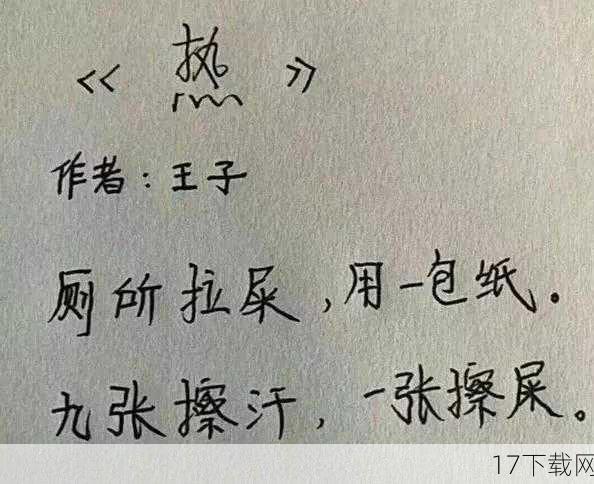 《热》
作者：王子
厕所拉屎，用一包纸。
九张擦汗，一张擦屎。
17下载网